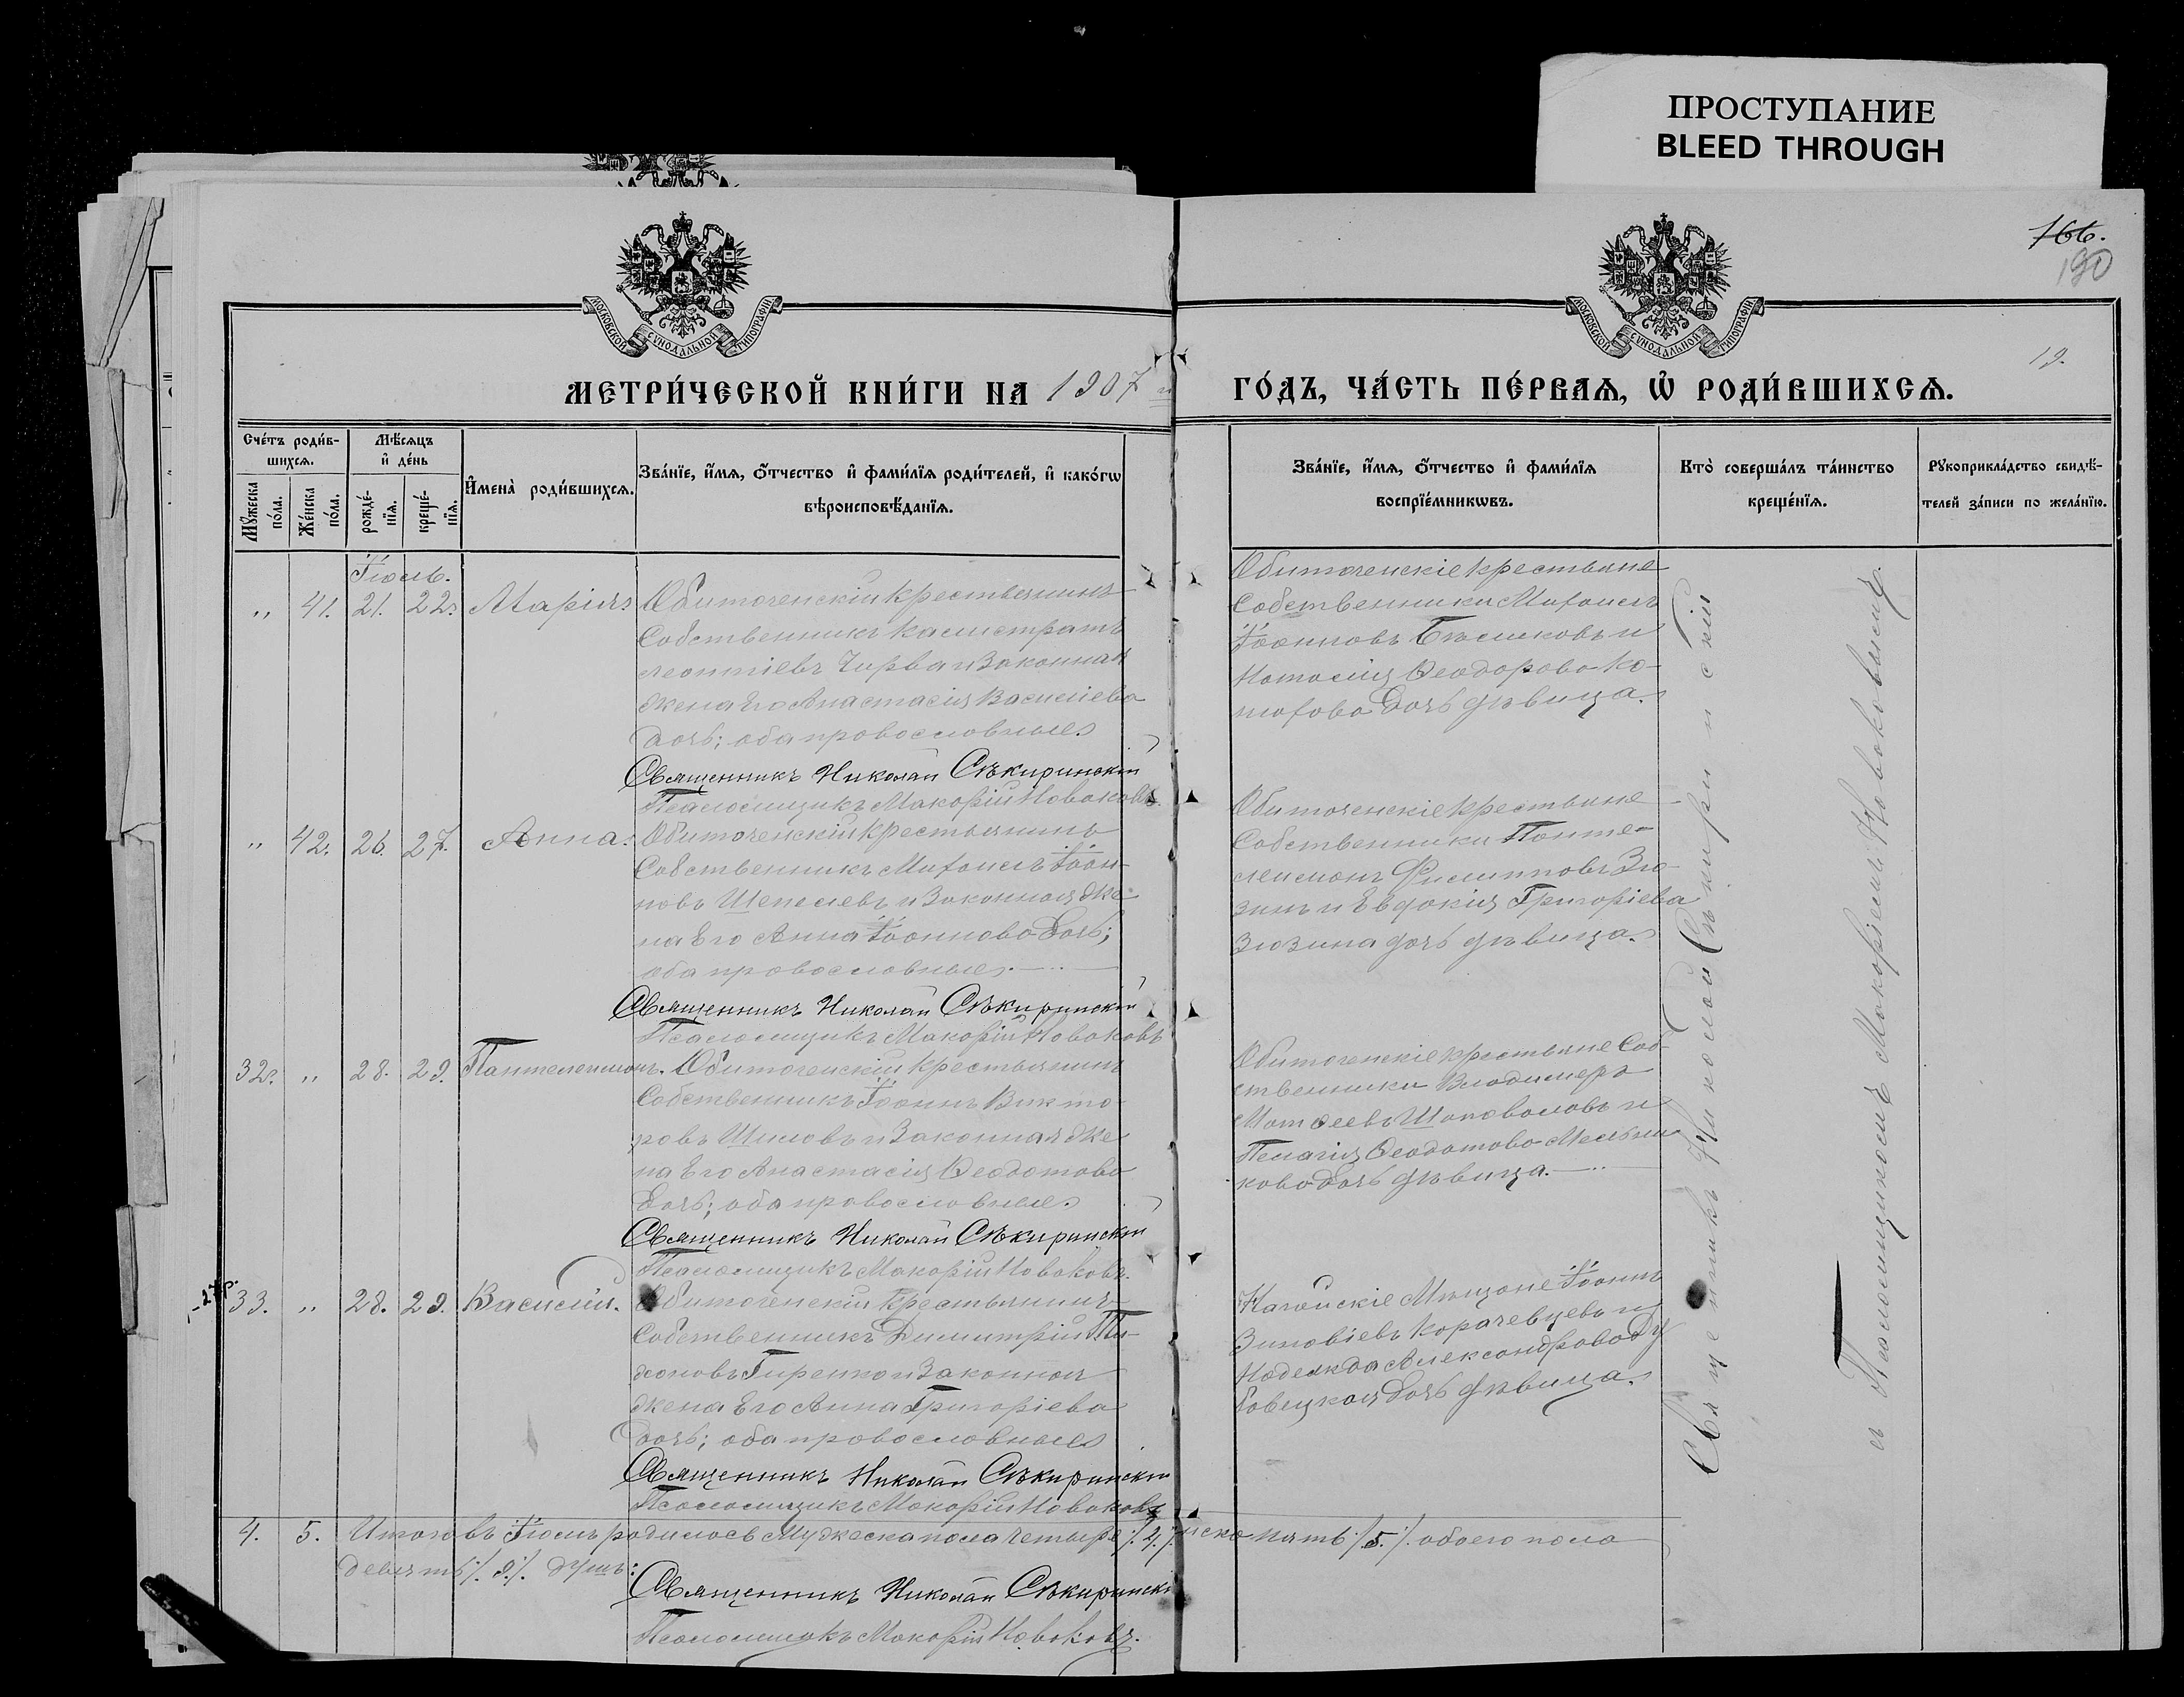 ПРОСТУПАНИЕ
BLEED THROUGH
166.
190
19.
МОСКОВСКОЙ СѴНОДАЛЬНОЙ ТИПОГРАФІИ
МОСКОВСКОЙ СѴНОДАЛЬНОЙ ТИПОГРАФІИ
МЕТРИ́ЧЕСКОЙ КНИ́ГИ НА 1907 й
ГО́ДЪ, ЧА́СТЬ ПЕ́РВАѦ, Ѡ҆ РОДИ́ВШИХСѦ.
Сче́тъ роди́в-
шихсѧ.
Мѣ́сѧцъ
и҆ де́нь
Мꙋ́жеска
по́ла.
Же́нска
по́ла.
рожде́-
нїѧ.
креще́-
нїѧ.
И҆мена̀ роди́вшихсѧ.
Зва́нїе, и҆́мѧ, ѻ҆́тчество и҆ фами́лїѧ роди́телей, и҆ како́гѡ
вѣроисповѣ́данїѧ.
Зва́нїе, и҆́мѧ, ѻ҆́тчество и҆ фами́лїѧ
воспрїе́мникѡвъ.
Кто̀ соверша́лъ та́инство
креще́нїѧ.
Рꙋкоприкла́дство свидѣ́-
телей за́писи по жела́нїю.
Іюль.
" 41. 21. 22. Марія
Обиточенскій крестьянинъ
Собственникъ Калистратъ
Леонтіевъ Чирва и Законная
жена Его Анастасія Василіева
дочь; оба православные
Священникъ Николай Сѣкиринскій
Псаломщикъ Макорій Новаковъ
Обиточенскіе крестьяне
Собственники Михаилъ
Іоанновъ Бѣликовъ и
Наталія Ѳеодорова Ко-
нюхова дочь дѣвица.
" 42. 26. 27. Анна.
Обиточенскій крестьянинъ
Собственникъ Михаилъ Іоан-
новъ Шепелевъ и Законная же-
на Его Анна Іоаннова дочь;
оба православные.
Священникъ Николай Сѣкиринскій
Псаломщикъ Макорій Новаковъ
Обиточенскіе крестьяне
Собственники Панте-
леимонъ Филипповъ Зю-
зинъ и Евдокія Григоріева
Зюзина дочь дѣвица.
32. " 28. 29. Пантелеимонъ.
Обиточенскій крестьянинъ
Собственникъ Іоаннъ Викто-
ровъ Шиловъ и Законная же-
на Его Анастасія Ѳеодотова
дочь; оба православные
Священникъ Николай Сѣкиринскій
Псаломщикъ Макорій Новаковъ.
Обиточенскіе крестьяне Соб-
ственники Владимеръ
Матѳеевъ Шаповаловъ и
Пелагія Ѳеодотова Мельни-
кова дочь дѣвица.
33. " 28. 29. Василій.
Обиточенскій крестьянинъ
Собственникъ Димитрій Ти-
хоновъ Гиренко и Законная
жена Его Анна Григоріева
дочь; оба православные
Священникъ Николай Сѣкиринскій
Псаломщикъ Макорій Новаковъ
Ногайскіе Мѣщане Іоаннъ
Зиновіевъ Корачевцевъ и
Надежда Александрова Ду-
бовецкая дочь дѣвица.
Священникъ Николай Сѣкиринскій
съ Псаломщикомъ Макоріемъ Новаковымъ.
4. 5. Итого въ Іюлѣ родилось Мужеска пола четыре /.4./ женска пять /.5./. обоего пола
девять /.9./. душъ:
Священникъ Николай Сѣкиринскій
Псаломщикъ Макорій Новаковъ.